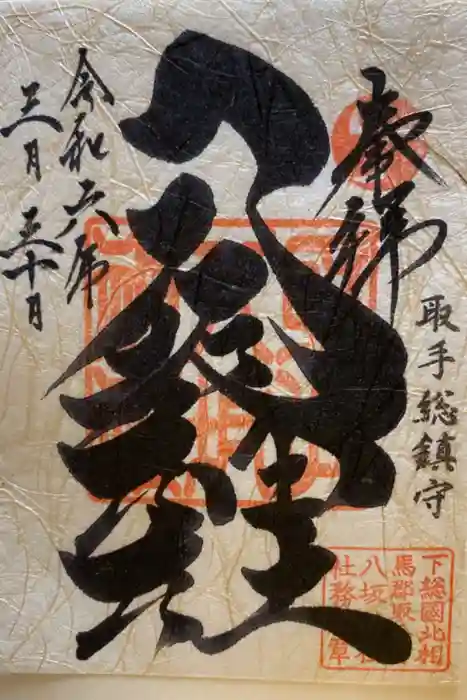 奉拝
取手総鎮守
八坂神社
令和六年
三月三十日
下総國北相
馬郡取
八坂
社務 章